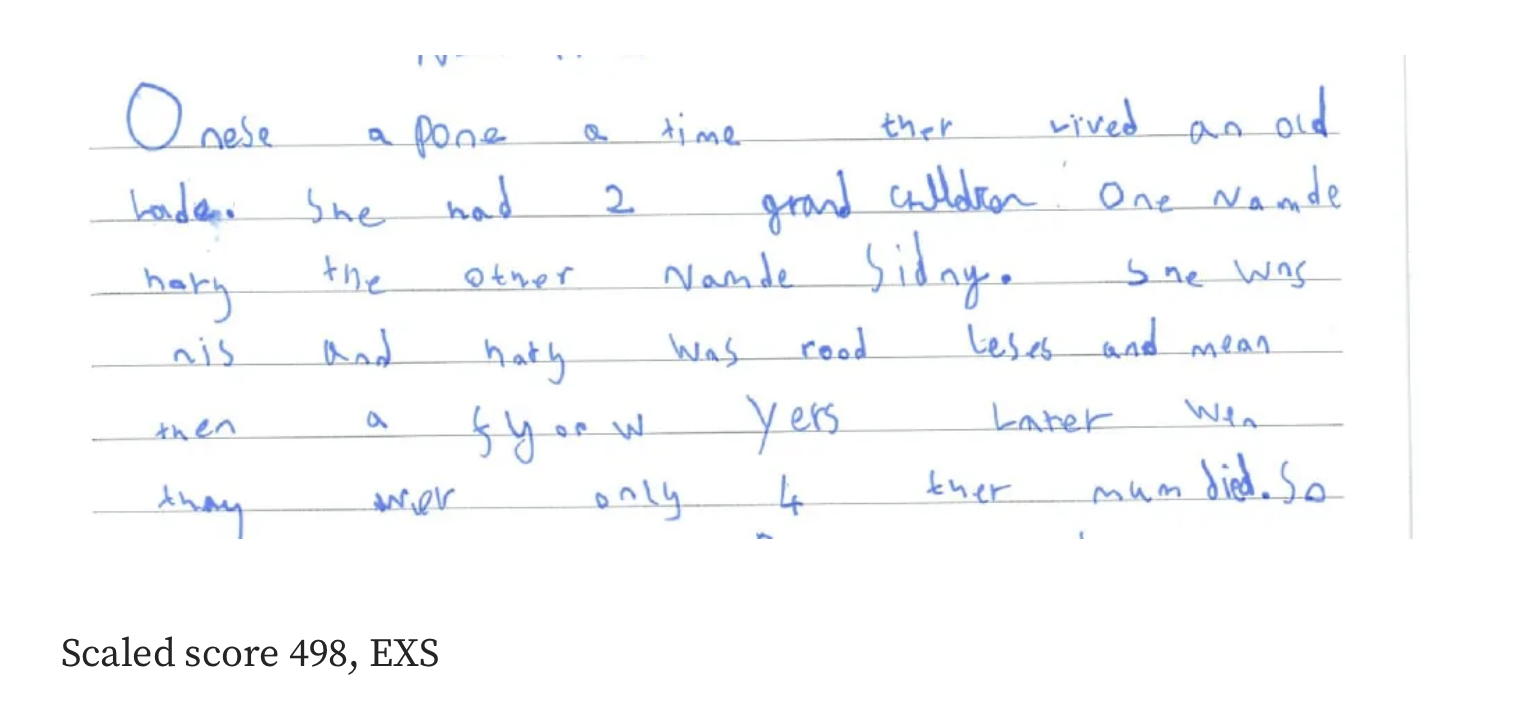 Onese a pone a time ther lived an old
lade. She had 2 grand cUlldron. One Namde
hary the other Namde Sidny. She was
nis and hary was rood leses and mean
then a fyorw yers Later wen
thay wer only 4 ther mum died. So
Scaled score 498, EXS